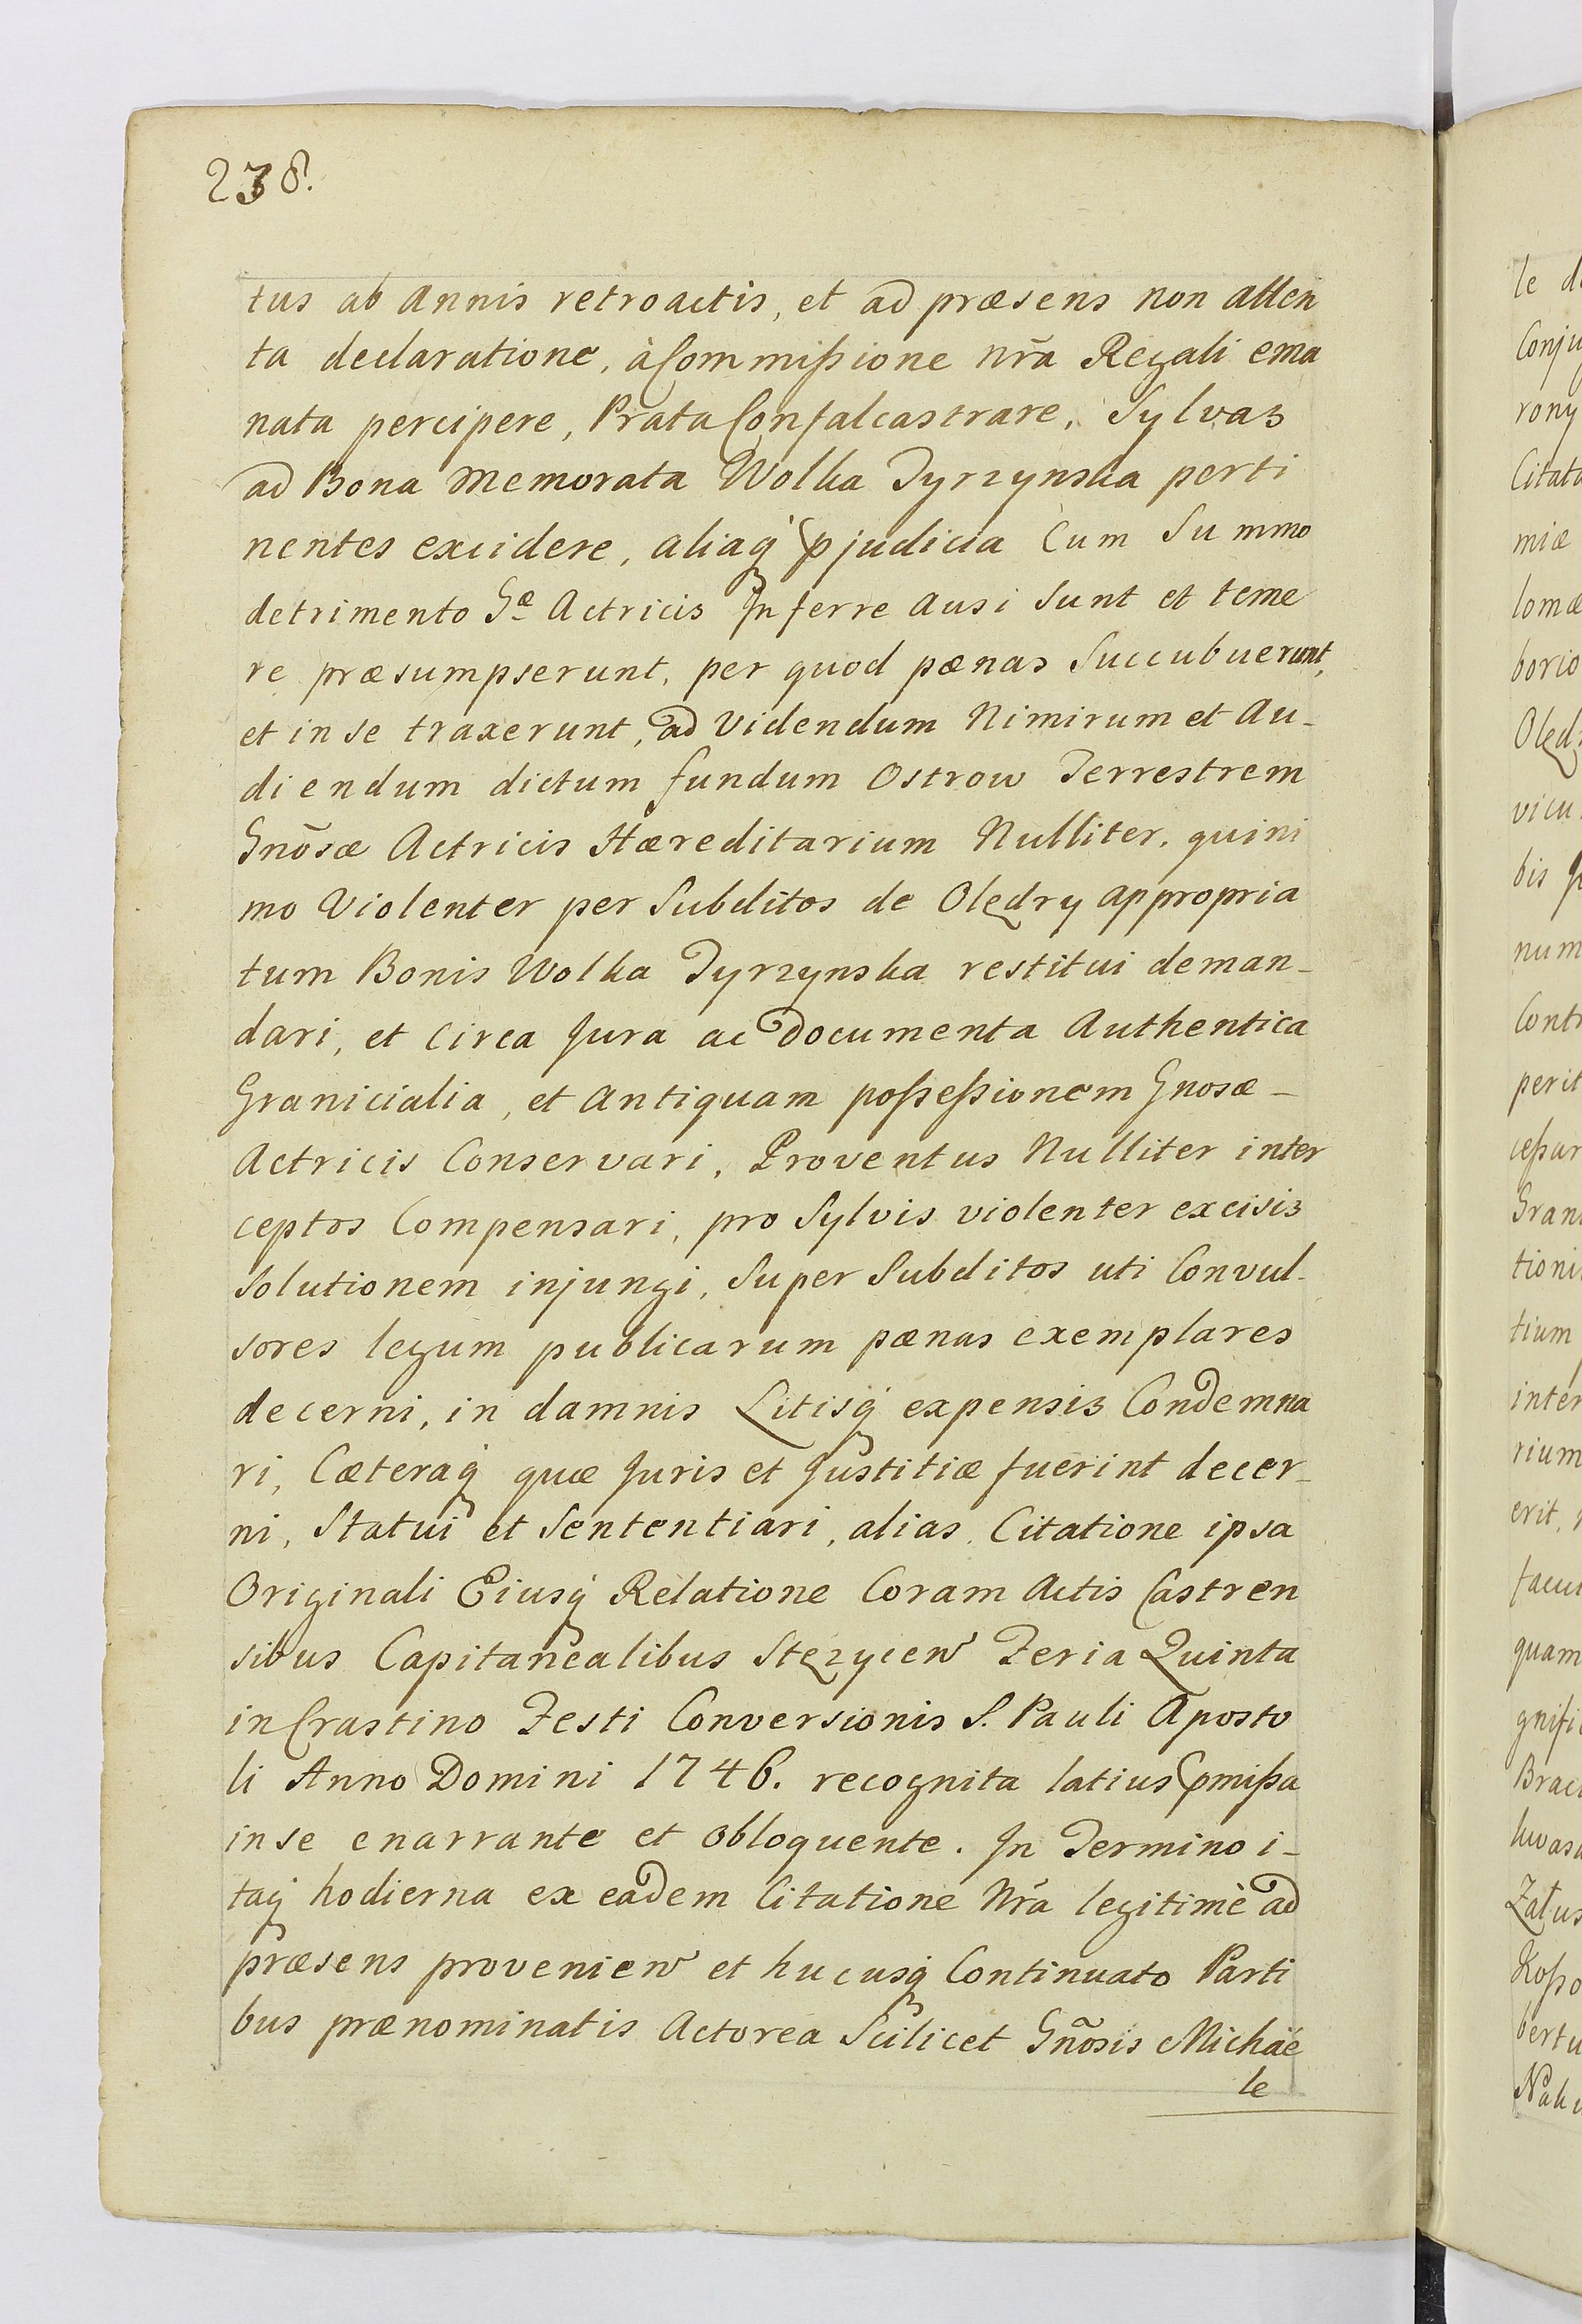 238.
tus ab Annis retroactis, et ad præsens non atten
ta declaratione, à Commißione nr̃a Regali ema
nata percipere, Prata Confalcastrare, Sylvas
ad Bona memorata Wolka Tyrzynska perti
nentes excidere, aliaq́ pjudicia Cum Summo
detrimento Gæ Actricis Inferre Ausi Sunt et teme
re præsumpserunt, per quod pænas Succubuerunt,
et in se traxerunt, ad Videndum Nimirum et Au-
diendum dictum fundum Ostrow Terrestrem
Gnõsæ Actricis Hæreditarium Nulliter, quini
mo Violenter per Subditos de Olędry appropria
tum Bonis Wolka Tyrzynska restitui deman-
dari, et Circa Jura ac Documenta Authentica
Granicialia, et Antiquam poßeßionem Gnosæ -
Actricis Conservari, Proventus Nulliter inter
ceptos Compensari, pro Sylvis violenter excisis
Solutionem injungi, Super Subditos uti Convul-
sores legum publicarum pænas exemplares
decerni, in damnis Litisq́ expensis Condemna
ri, Cæteraq́ quæ Juris et Justitiæ fuerint decer-
ni, Statui et Sententiari, alias Citatione ipsa
Originali Eiusq́ Relatione Coram Actis Castren
sibus Capitanealibus Stęzycen̄ Feria Quinta
in Crastino Festi Conversionis S. Pauli Aposto
li Anno Domini 1746. recognita latius pmißa
in se enarrante et obloquente. In Termino i-
taq́ hodierna ex eadem Citatione Nr̃a legitimè ad
præsens provenien̄ et hucusq́ Continuato Parti
bus prænominatis Actorea Scilicet Gñosis Michaé
le
le
Conju
rony
Citata
miæ
lomæ
borio
Olędr
vicu
bis
num
Cont
perit
ceßar
Gran
tioni
tium
inter
rium
erit,
facu
quam
gnifi
Brac
Zału
Koßo
bertu